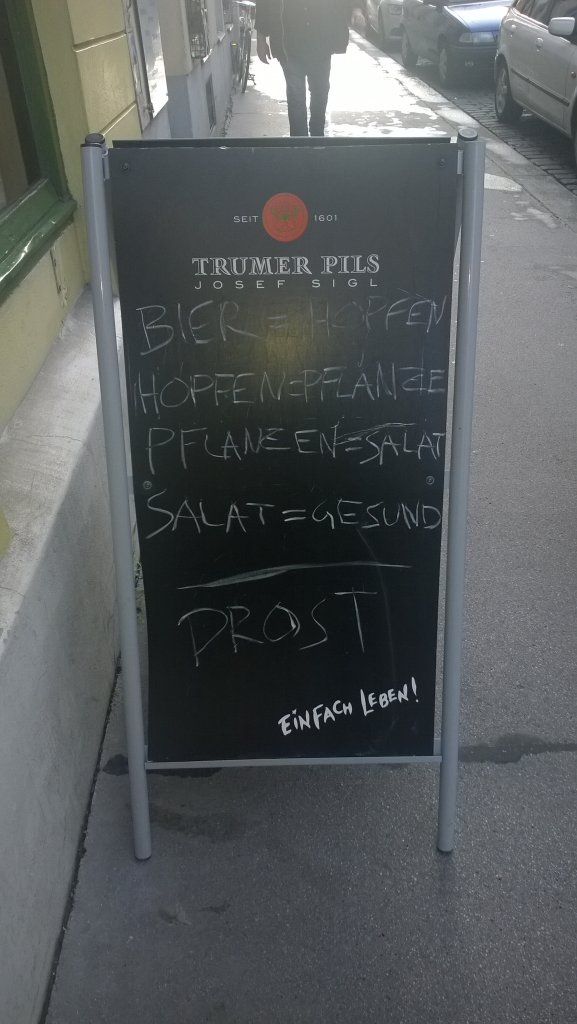 SEIT 1601
TRUMER PILS
JOSEF SIGL
BIER = HOPFEN
HOPFEN=PFLANZE
PFLANZEN=SALAT
SALAT=GESUND
PROST
EiNFACH LEBEN!